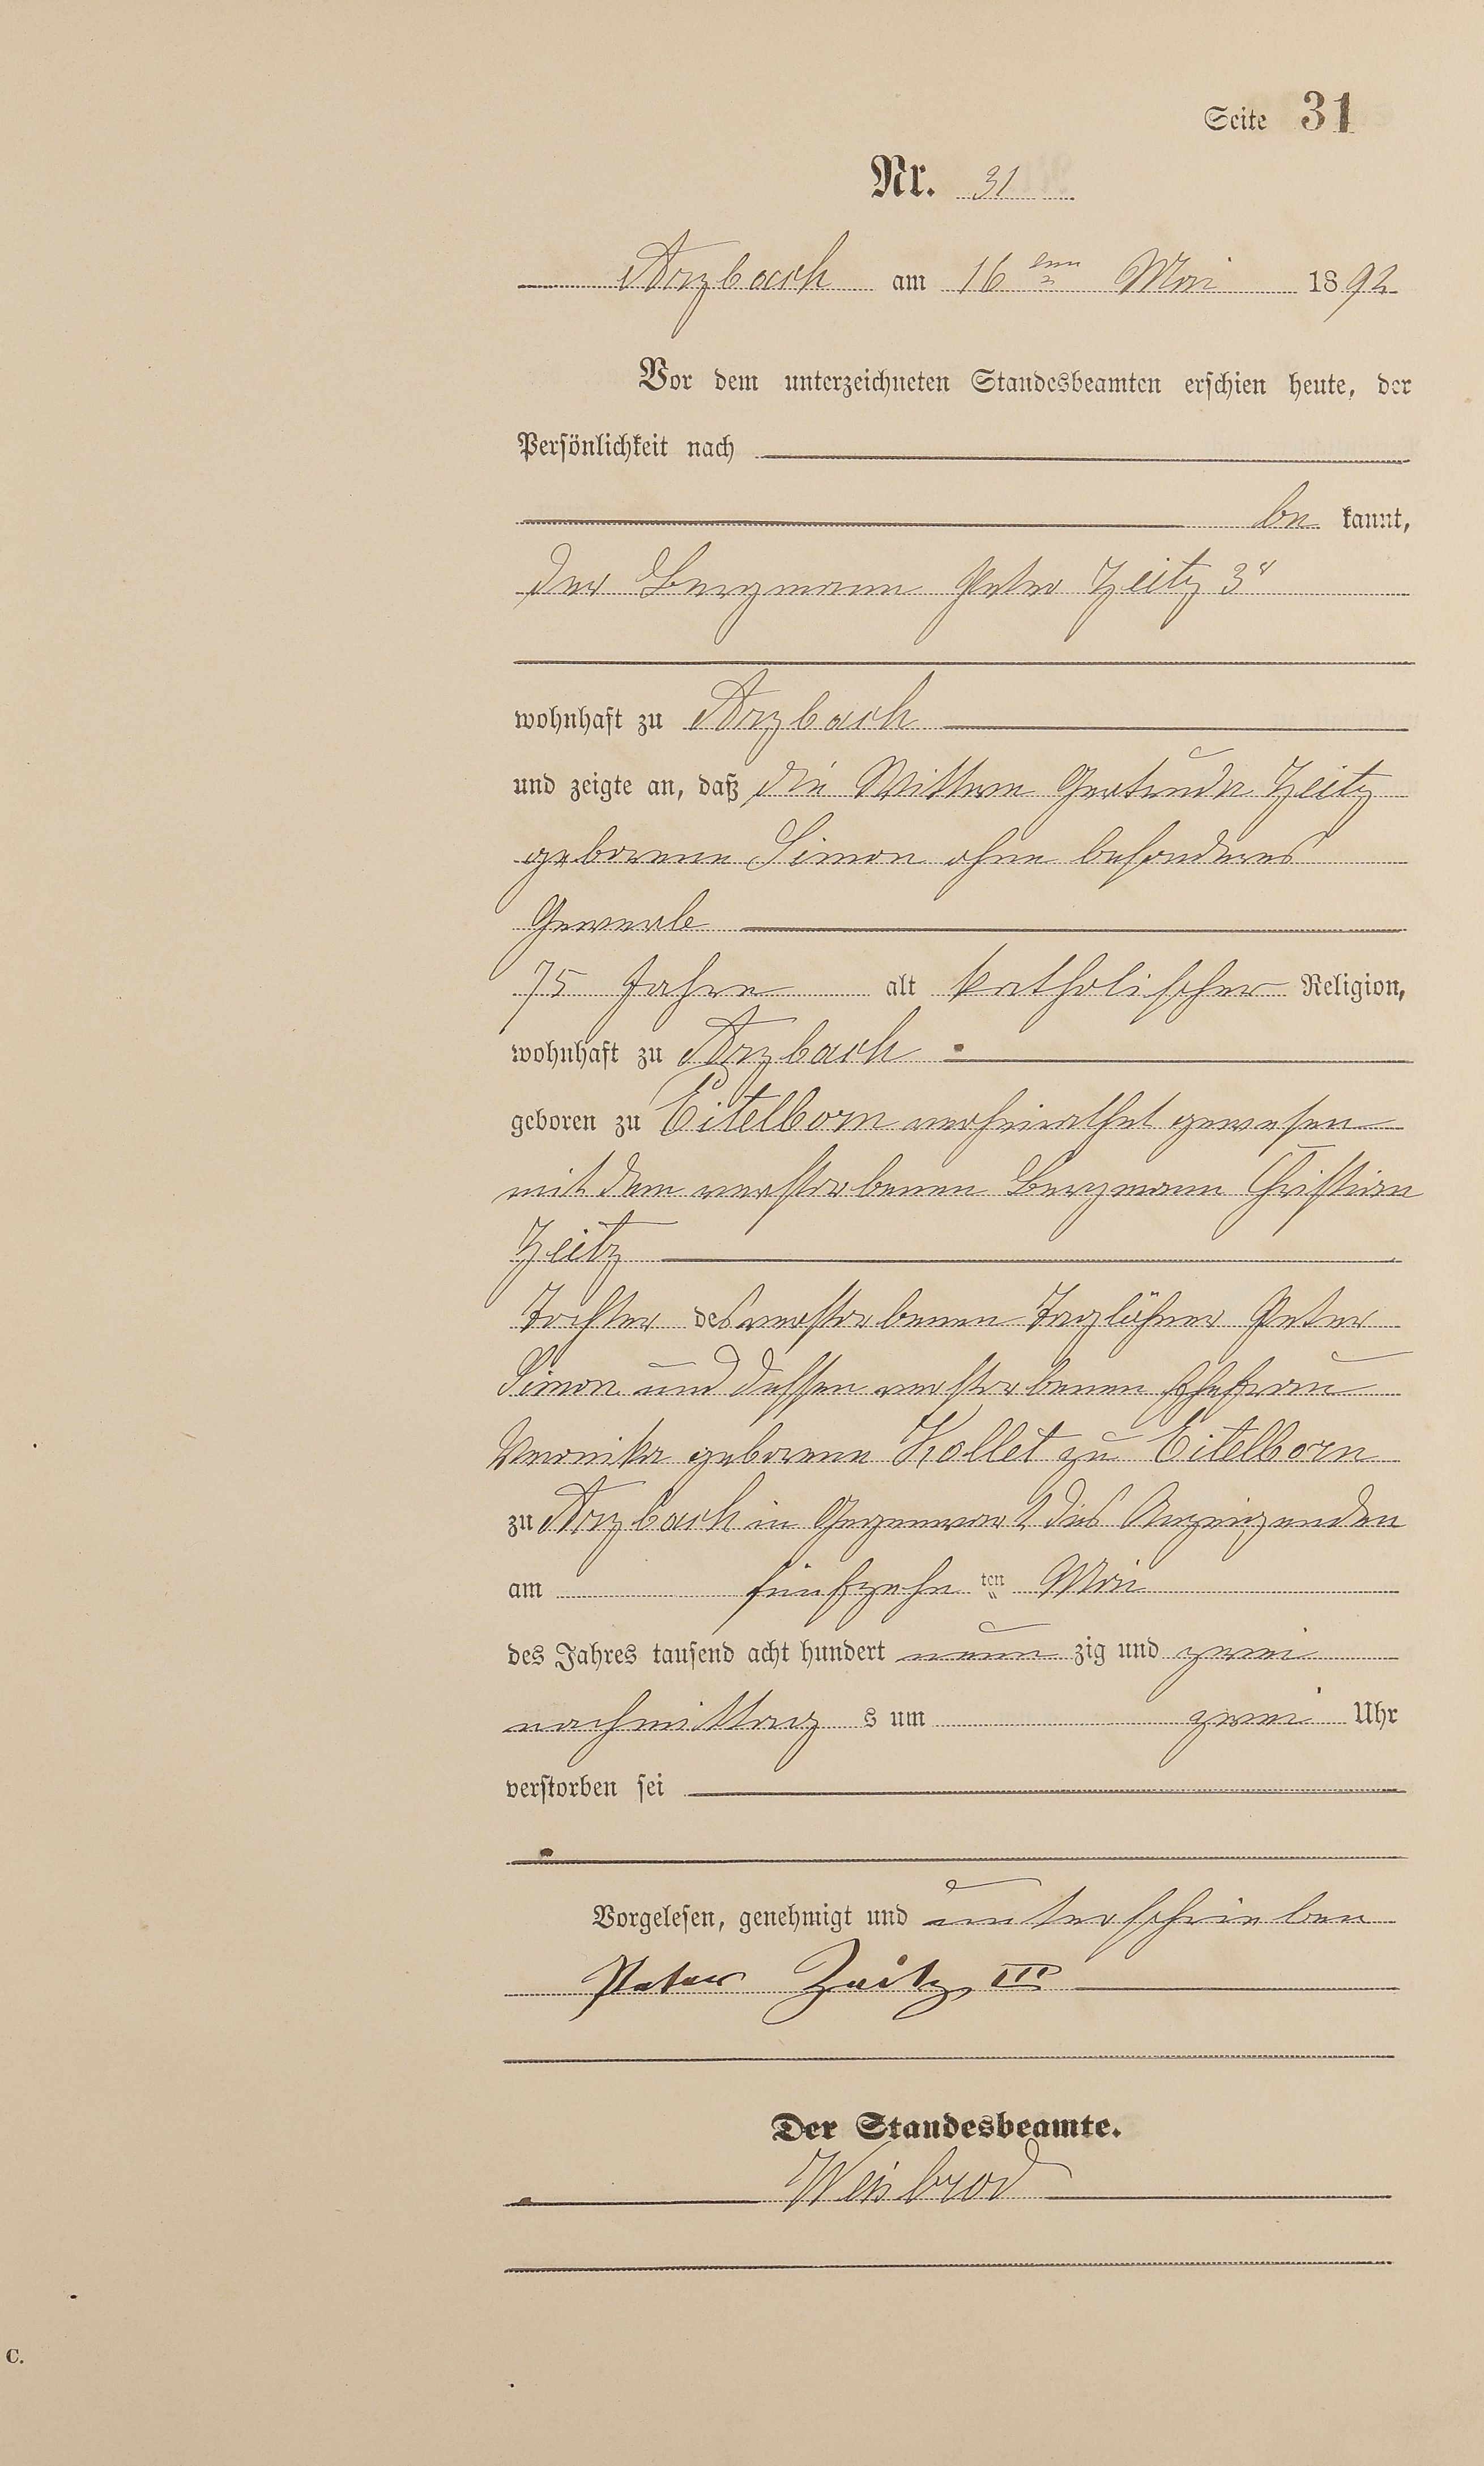 Seite 31
Nr. 31
Arzbach am 16 ten Mai 1892
Vor dem unterzeichneten Standesbeamten erschien heute, der
Persönlichkeit nach
be kannt,
der Bergmann Peter Zeitz 3r
wohnhaft zu Arzbach
und zeigte an, daß die Wittwe Gertrude Zeitz
geborene Simon ohne besonderes
Gewerbe
75 Jahre alt katholischer Religion,
wohnhaft zu Arzbach
geboren zu Eitelborn verheirathet gewesen
mit dem verstorbenen Bergmann Christian
Zeitz
Tochter des verstorbenen Taglöhner Peter
Simon und dessen verstorbenen Ehefrau
Veronika geborene Kollet zu Eitelborn
zu Arzbach in Gegenwart des Anzeigenden
am fünfzehn ten Mai
des Jahres tausend acht hundert neun zig und zwei
nachmittag s um zwei Uhr
verstorben sei
Vorgelesen, genehmigt und unterschrieben
Peter Zeitz III
Der Standesbeamte.
Weisbrod
C.